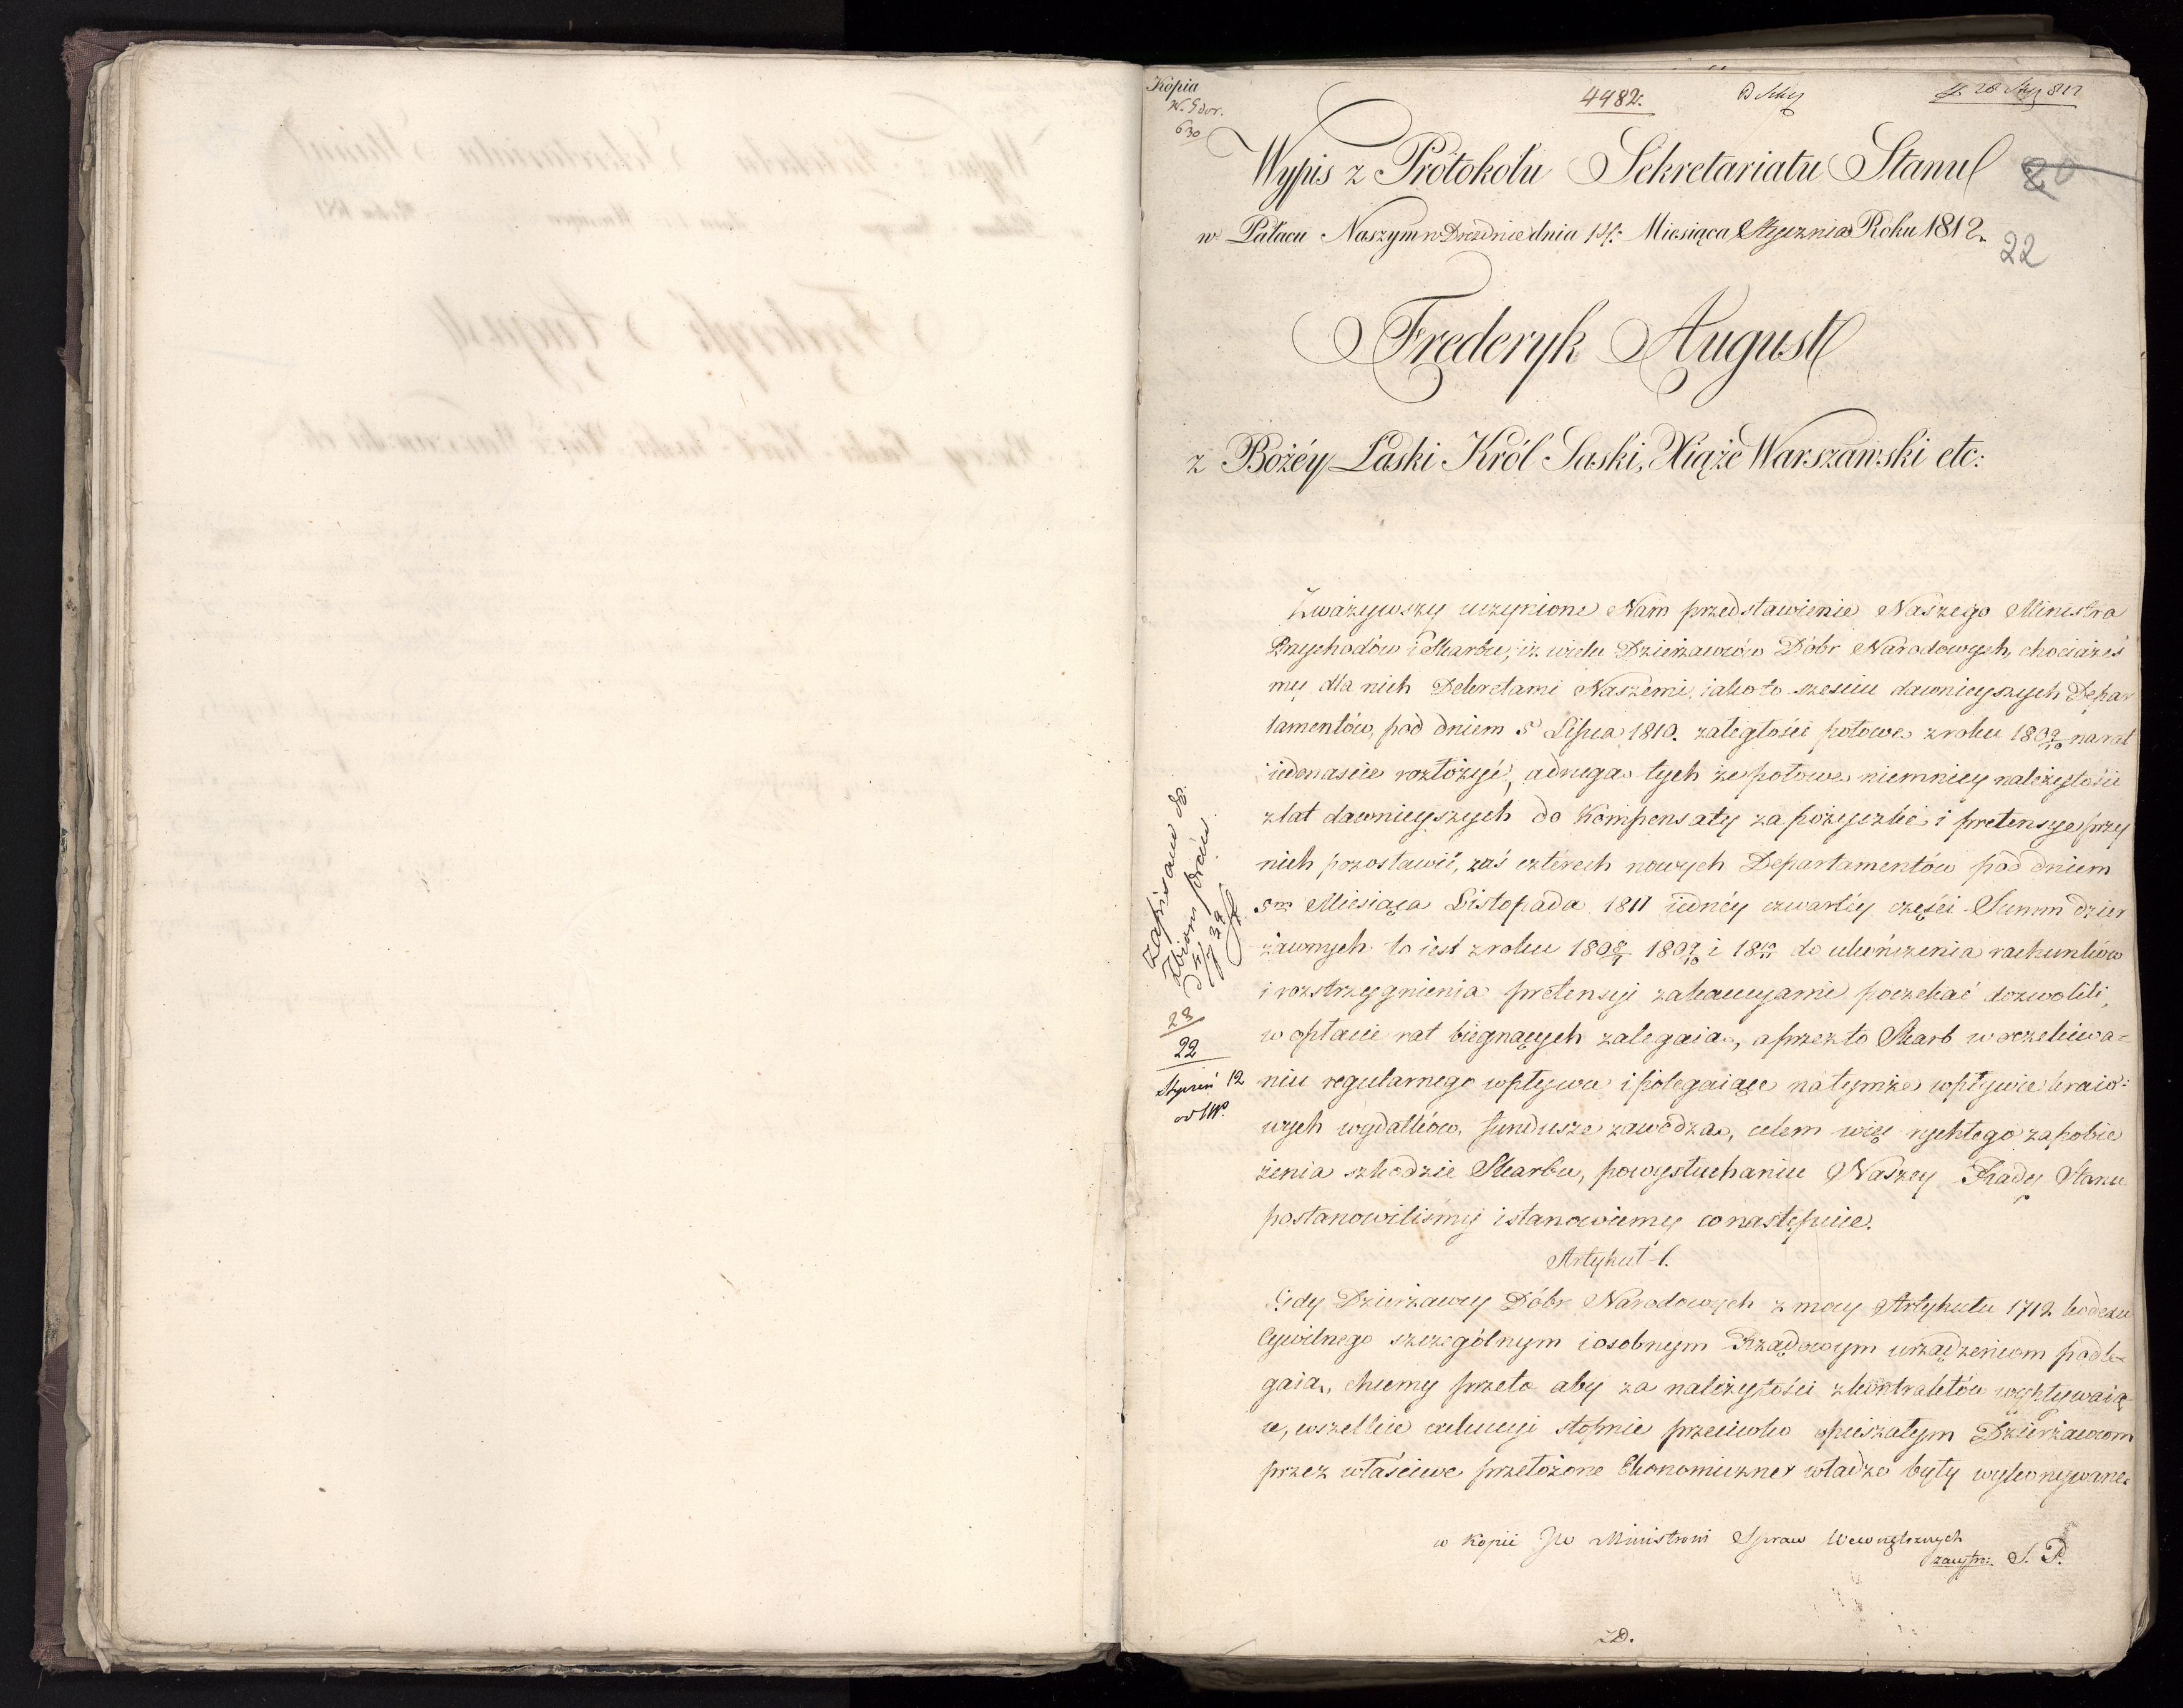 Kopia
4982.
630
Wypis z Protokołu Sekretariatu Stanu
20
w Pałacu Naszym w Dreznie dnia 14. Miesiąca Stycznia Roku 1812.
22
Frederyk August
z Bożéy Łaski Król Saski, Xiąże Warszawski etc:
Zważywszy uczynione Nam przedstawienie Naszego Ministra
Przychodów i Skarbu, iż wielu Dzierżawców Dóbr Narodowych, chociażeś
my dla nich Dekretami Naszemi, iako to sześciu dawnieyszych Depar
tamentów, pod dniem 5 Lipca 1810. zaległości połowę z roku 1809/10 na rat
iedenaście rozłożyć, a drugą tychże połowę niemniey należytości
z lat dawnieyszych do Kompensaty za pożyczki i pretensye przy
nich pozostawić, zaś czterech nowych Departamentów pod dniem
5m Miesiąca Listopada 1811 iednéy czwartéy części Summ dzier
żawnych to iest z roku 1808/9 1809/10 i 1810/11 do ukończenia rachunków
i rozstrzygnienia pretensyi zakaucyami poczekać dozwolili,
w opłacie rat biegnących zalegaią, a przez to Skarb w oczekiwa=
niu regularnego wpływu i polegaiące na tymże wpływie kraio=
wych wydatków, fundusze zawodzą, celem więc rychłego zapobie
żenia szkodzie Skarbu, po wysłuchaniu Naszey Rady Stanu
postanowiliśmy i stanowiemy co następuie.
Artykuł 1.
Gdy Dzierżawcy Dóbr Narodowych z mocy Artykułu 1712 kodexu
Cywilnego szczególnym i osobnym Rządowym urządzeniom podle=
gaią, chcemy przeto aby za należytości z kontraktów wypływaią
ce, wszelkie exekucyi stopnie przeciwko opieszałym Dzierżawcom
przez właściwe przełożone Ekonomiczne władze były wykonywane.
w Kopii JW Ministrowi Spraw Wewnętrznych
S. P.
zapisano do
23
22
Styczeń 12